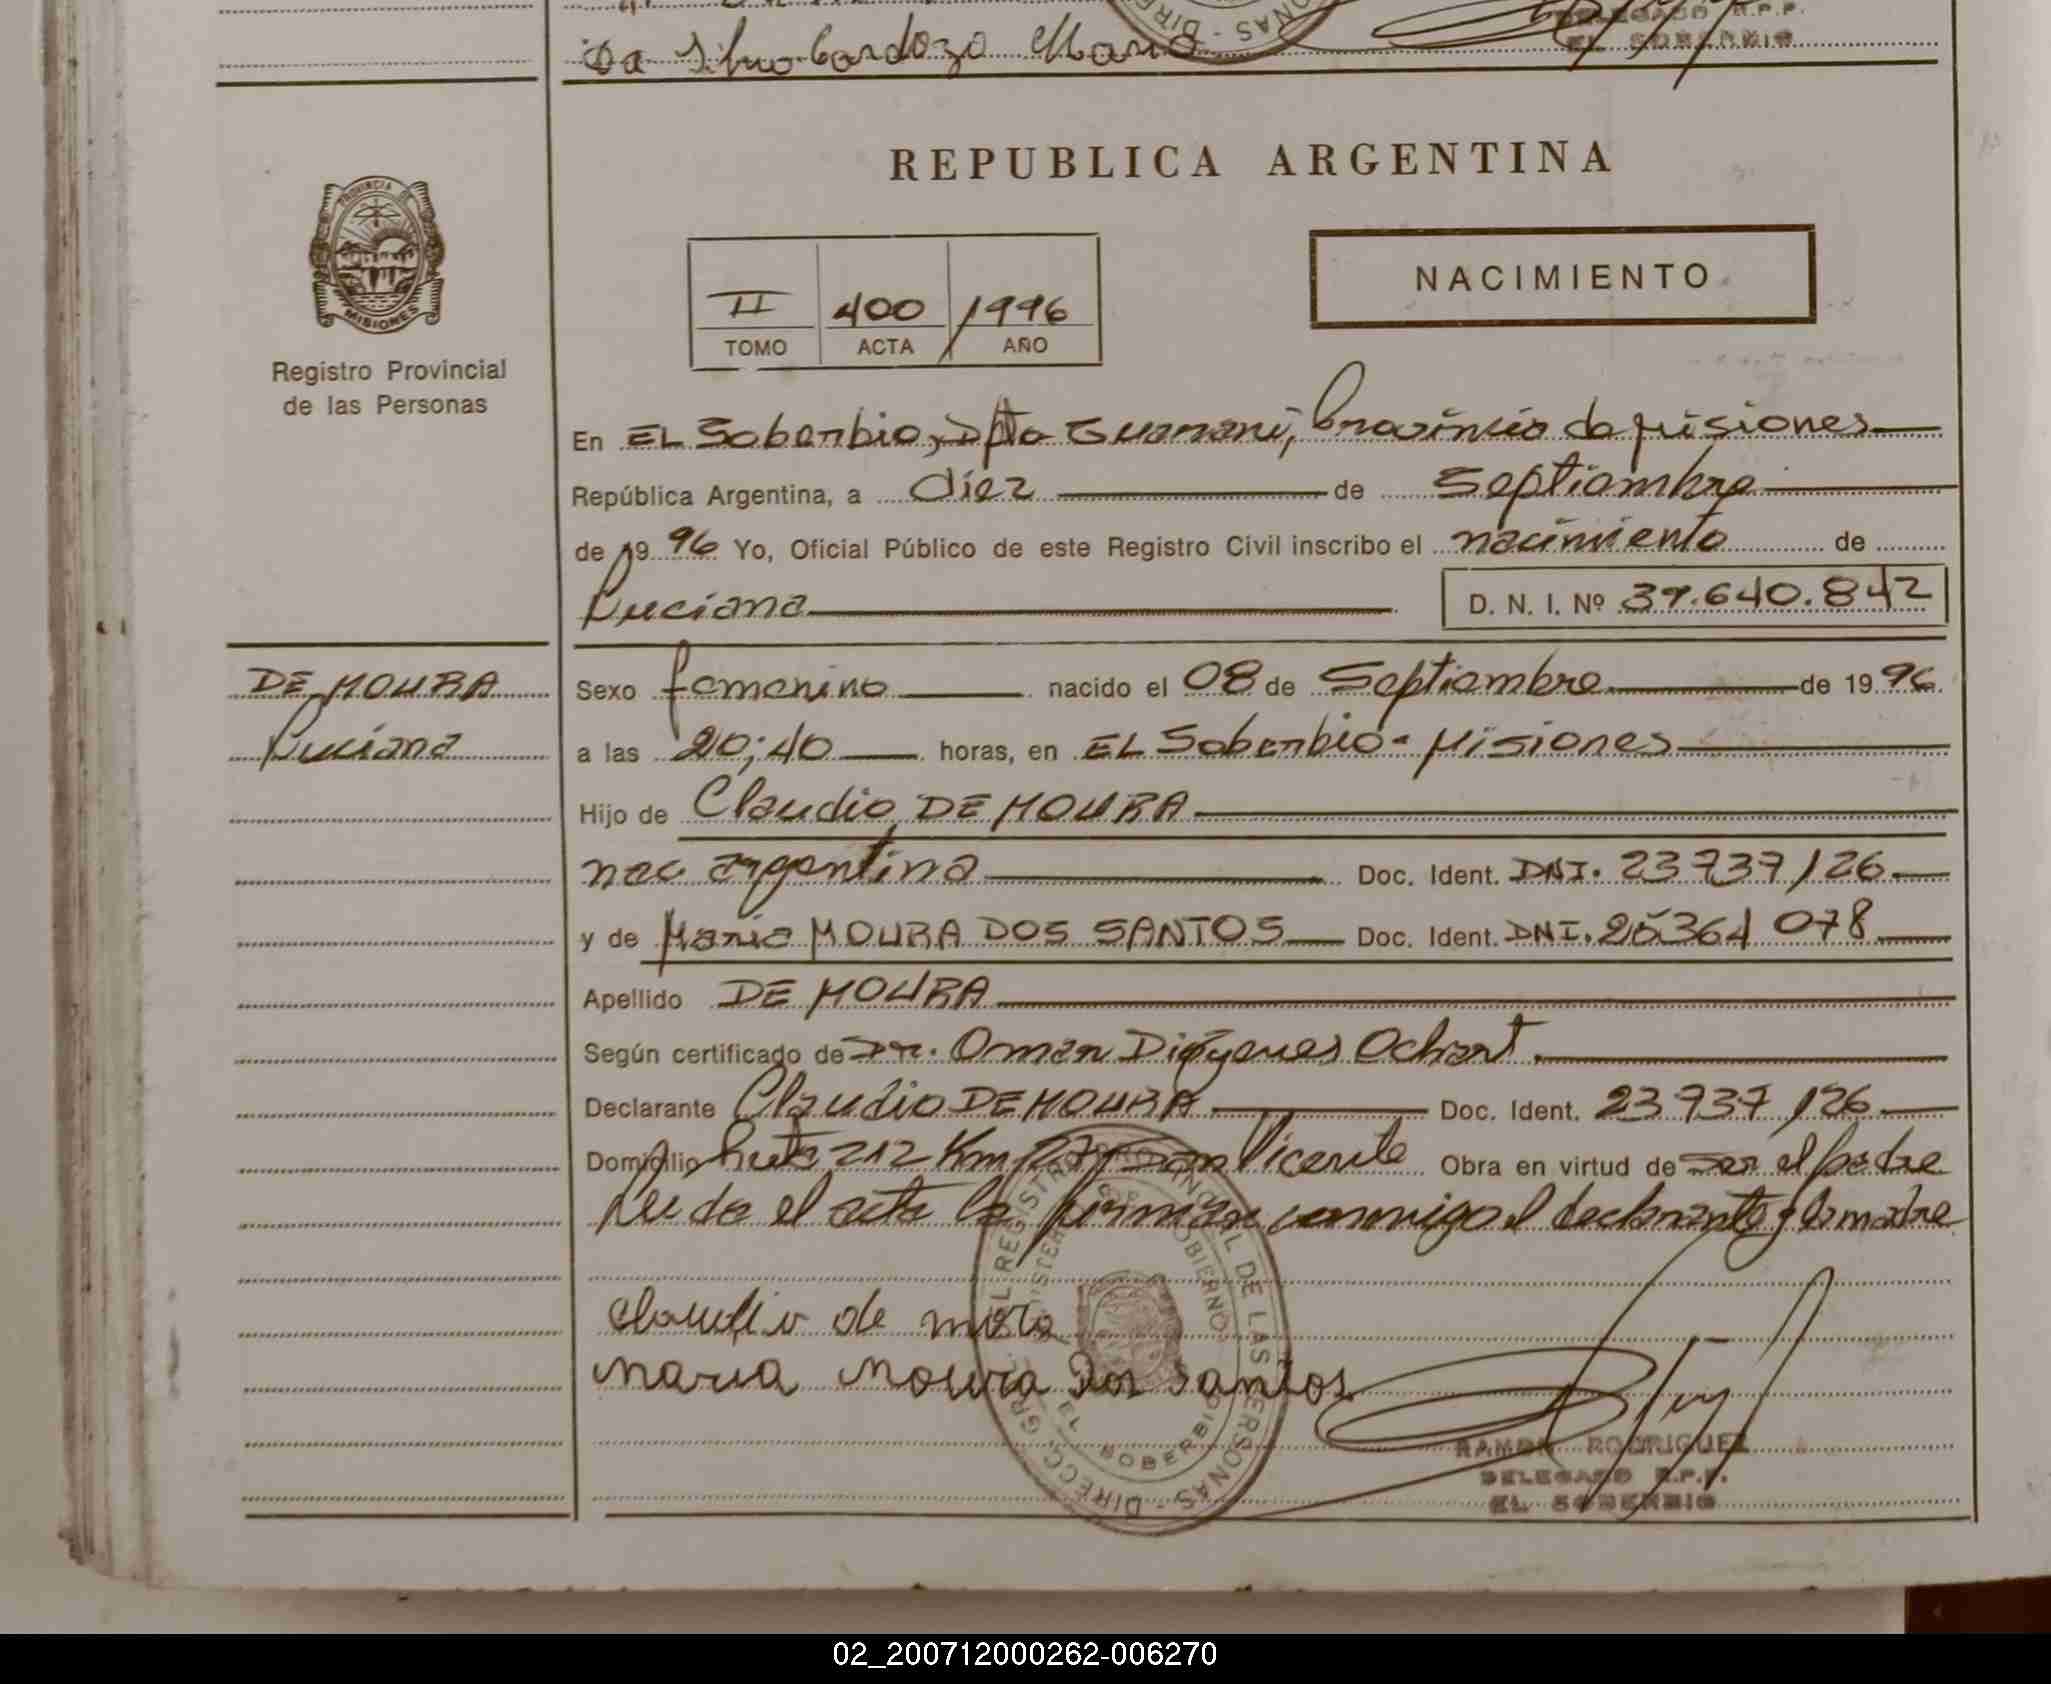 Da Silva Cardozo Maria
DELEGADO R.P.P.
EL SOBERBIO
PROVINCIA DE
MISIONES
Registro Provincial
de las Personas
REPUBLICA ARGENTINA
II 400 1996
TOMO ACTA AÑO
NACIMIENTO
En EL Soberbio, Dpto Guarani, Provincia de Misiones
República Argentina, a diez de Septiembre
de 1996 Yo, Oficial Público de este Registro Civil inscribo el nacimiento de
Luciana D. N. I. Nº 39.640.842
DE MOURA
Luciana
Sexo femenino nacido el 08 de Septiembre de 1996
a las 20;40 horas, en EL Soberbio - Misiones
Hijo de Claudio DE MOURA
nac argentina Doc. Ident. DNI. 23737126
y de Maria MOURA DOS SANTOS Doc. Ident. DNI. 25364 078
Apellido DE MOURA
Según certificado de Dr. Omar Diógenes Ochart.
Declarante Claudio DE MOURA Doc. Ident. 23 737 126
Domicilio Ruta 212 Km 27 San Vicente Obra en virtud de ser el padre
Leida el acta la firman conmigo el declarante y la madre
Claudio de
Maria Moura Dos Santos
REGISTRO PROVINCIAL DE LAS PERSONAS - DIRECC. GRAL.
EL SOBERBIO
RAMON RODRIGUEZ
DELEGADO R.P.P.
EL SOBERBIO
02_200712000262-006270